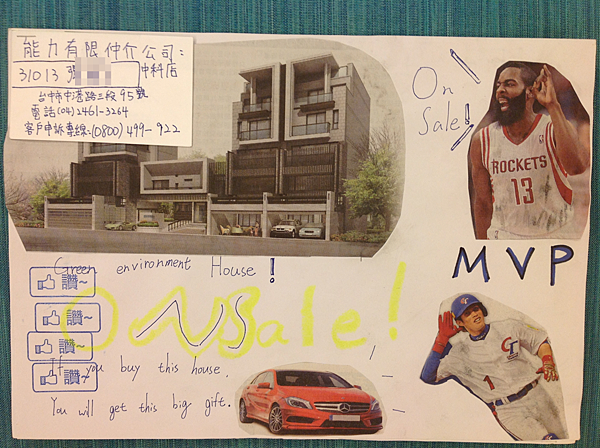 能力有限仲介公司:
31013 張
中科店
台中市中港路三段95號
電話(04)2461-3264
客戶申訴專線:(0800)499-922
On
Sale!
ROCKETS
13
MVP
Green environment House!
讚~
讚~
讚~
讚~
On Sale!
VS
If you buy this house,
You will get this big gift.
CT
1